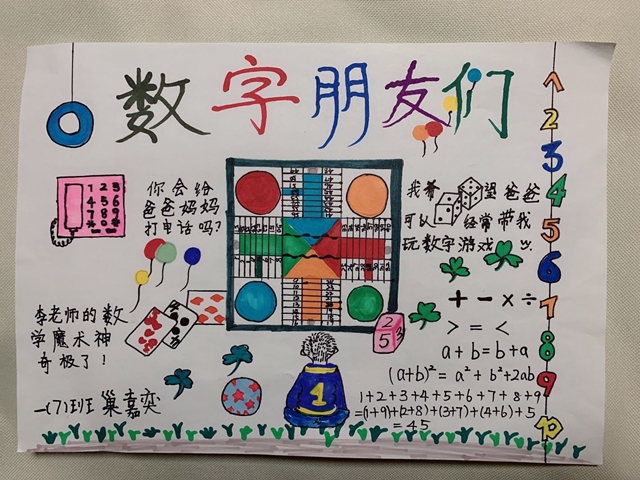 数字朋友们
1 2 3
4 5 6
7 8 9
你会给
爸爸妈妈
打电话吗?
李老师的数
学魔术神
奇极了!
一(7)班 巢嘉奕
2
5
1
我希望爸爸
可以经常带我
玩数字游戏
+ − × ÷
> = <
a+b=b+a
(a+b)²=a²+b²+2ab
1+2+3+4+5+6+7+8+9
=(1+9)+(2+8)+(3+7)+(4+6)+5
=45
1
2
3
4
5
6
7
8
9
10